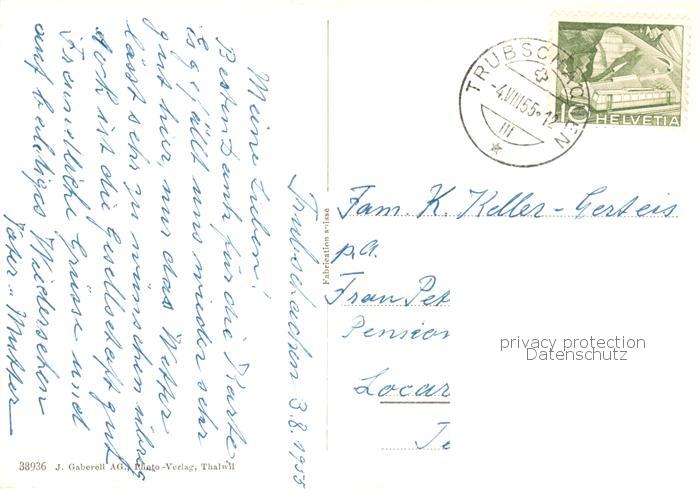 Trubschachen 3.8.1955
Meine Lieben!
Besten Dank für die Karte,
es gefällt uns wieder sehr
gut hier nur das Wetter
lässt sehr zu wünschen übrig
doch ist die Gesellschaft gut
Freundliche Grüsse und
auf baldiges Wiedersehen
Vater u. Mutter
38936 J. Gaberell AG., Photo-Verlag, Thalwil
Fabrication suisse
TRUBSCHACHEN
-4.VIII.55-12
III
10 HELVETIA
Fam. K. Keller-Gerteis
p.a.
Frau Pet
Pension
Locar
Te
privacy protection
Datenschutz